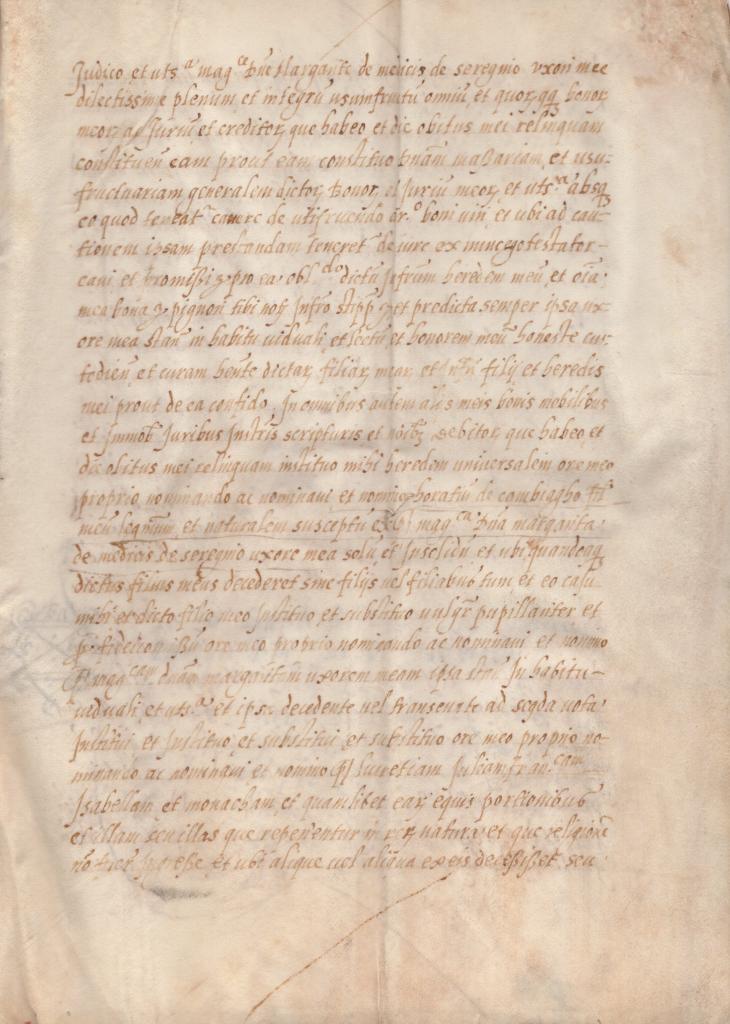 Judico et uts.ª mag.ce Dne Margarite de medicis de seregnio uxori mee
dilectissime plenum et integrũ usumfructũ omniũ et quorcũq bonor
meor ac Juriũ et creditor que habeo et die obitus mei relinquam
constituen eam prout eam constituo Dnam massariam et usu-
fructuariam generalem dictor bonor et Juriũ meor et uts.ª absq
eo quod teneat cavere de utifruendo ar.º boni viri et ubi ad cau-
tionem ipsam prestandam teneret de iure ex nunc ego testator
cavi et promissi pro ea obl.do dictũ Jnfrum heredem meũ et oia
mea bona pignori tibi not Jnfro stipp et predicta semper ipsa ux-
ore mea stan in habitu viduali et lectũ et honorem meũ honeste cu-
todien et curam hente dictar filiar mear et filij et heredis
mei prout de ea confido. In omnibus autem alijs meis bonis mobilibus
et Immob Juribus Instris scripturis et noibz debitor que habeo et
die obitus mei relinquam instituo mihi heredem universalem ore meo
proprio nominando ac nominavi et nomino horatiũ de cambiagho fil
meũ legmum et naturalem susceptũ ex mag.ca Dna margarita
de medicis de seregnio uxore mea solũ et Insolidũ et ubi quandocqq
dictus filius meus decederet sine filijs vel filiabus tum et eo casu
mihi et dicto filio meo Instituo et substituo vulgr pupillariter et
p fideicom ore meo proprio nominando ac nominavi et nomino
mag.cam dnam margaritam uxorem meam ipsa stan In habitu
viduali et uts.ª et ipsa decedente vel transeunte ad segda vota
Institui et Instituo et substitui et substituo ore meo proprio no-
minando ac nominavi et nomino lucretiam Juliam fran.cam
Isabellam et monacham et quamlibet ear equis portionibus
et illam seu illas que reperientur in rer natura et que religione
no esse et ubi alique vel aliqua ex eis decessisset seu